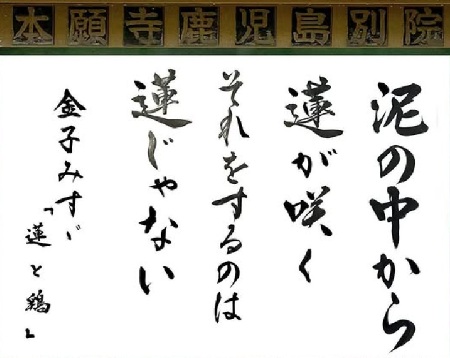 本願寺鹿児島別院
泥の中から
蓮が咲く
それをするのは
蓮じゃない
金子みすゞ
「蓮と鶏」